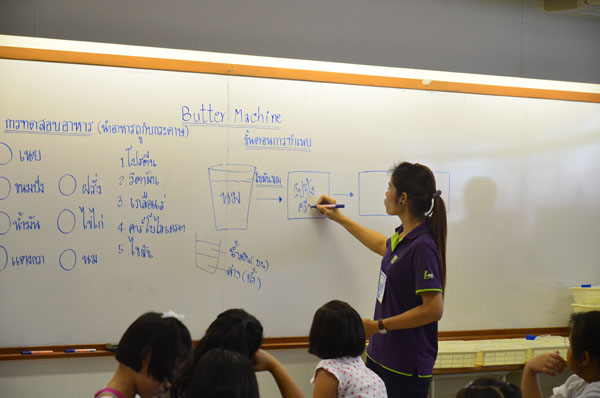 Butter Machine
การทดสอบอาหาร (นำอาหารถูกับกระดาษ)
ขั้นตอนการทำเนย
เนย
ขนมปัง
ฝรั่ง
น้ำมัน
ไข่ไก่
แตงกวา
นม
1. โปรตีน
2. วิตามิน
3. เกลือแร่
4. คาร์โบไฮเดรต
5. ไขมัน
นม